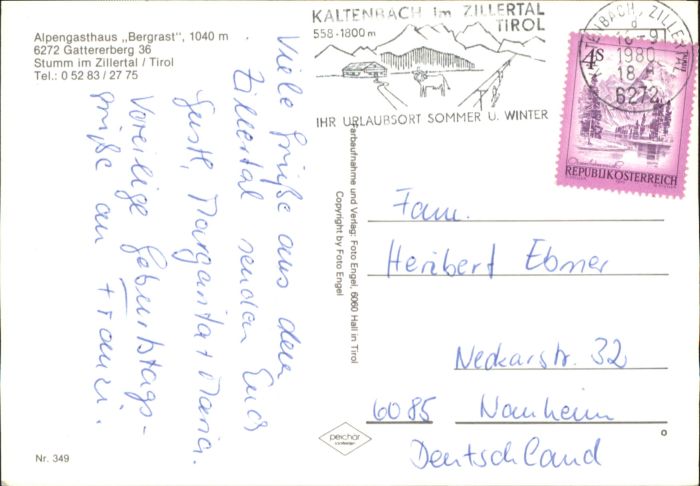 Alpengasthaus „Bergrast", 1040 m
6272 Gattererberg 36
Stumm im Zillertal / Tirol
Tel.: 0 52 83 / 27 75
KALTENBACH im ZILLERTAL
TIROL
558-1800m
IHR URLAUBSORT SOMMER U. WINTER
KALTENBACH, ZILLERTAL
d
-9
1980
18
6272
4S
Tirol
REPUBLIK ÖSTERREICH
Viele Grüße aus dem
Zillertal senden Euch
Gustl, Margarita + Maria.
Voreilige Geburtstags-
grüße an
Farbaufnahme und Verlag: Foto Engel, 6060 Hall in Tirol
Copyright by Foto Engel
Fam.
Heribert Ebner
Neckarstr. 32
6085 Nauheim
Deutschland
perchar
Nr. 349